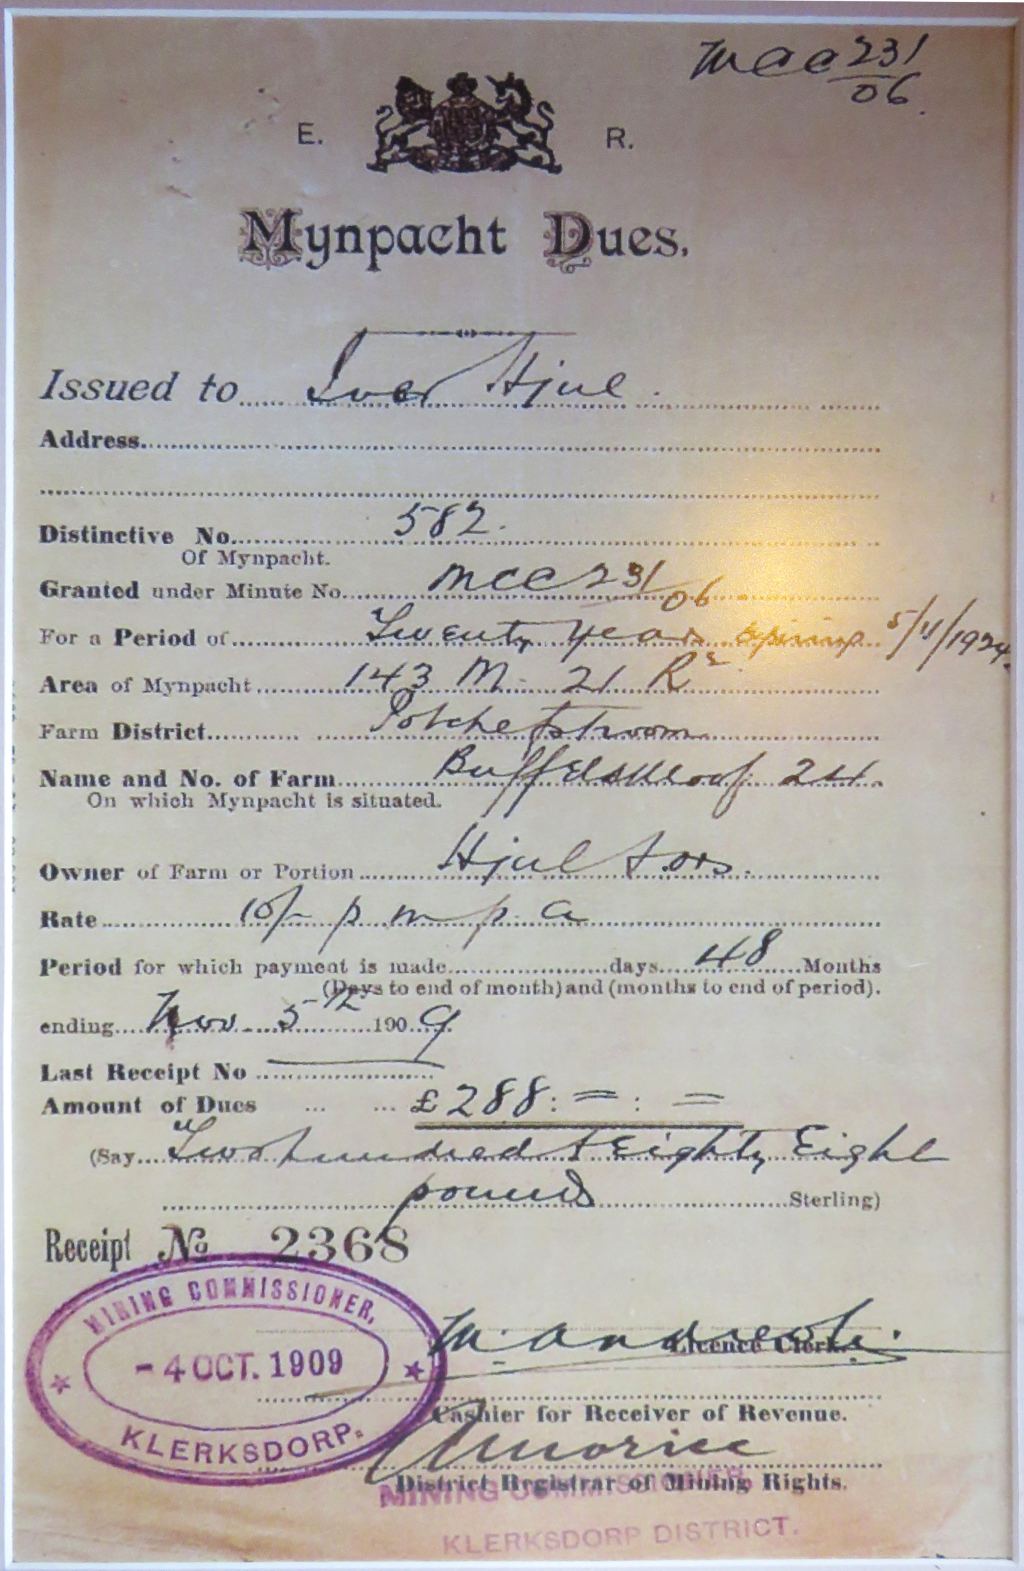 MCC 231/06
E. R.
Mynpacht Dues.
Issued to Iver Hjul.
Address.
Distinctive No. 582.
Of Mynpacht.
Granted under Minute No. MCC 231/06
For a Period of Twenty years 5/11/1924.
Area of Mynpacht 143 M. 21 R
Farm District Potchefstroom
Name and No. of Farm Buffelskloof 24.
On which Mynpacht is situated.
Owner of Farm or Portion Hjul & ors.
Rate 10/- p m p. a
Period for which payment is made days 48 Months
(Days to end of month) and (months to end of period).
ending Nov 5th 1909
Last Receipt No
Amount of Dues ... ... £288: = : =
(Say Two hundred & Eighty Eight
pounds Sterling)
Receipt No 2368
MINING COMMISSIONER,
- 4 OCT. 1909
KLERKSDORP.
Licence Clerk.
Cashier for Receiver of Revenue.
District Registrar of Mining Rights.
MINING COMMISSIONER,
KLERKSDORP DISTRICT.